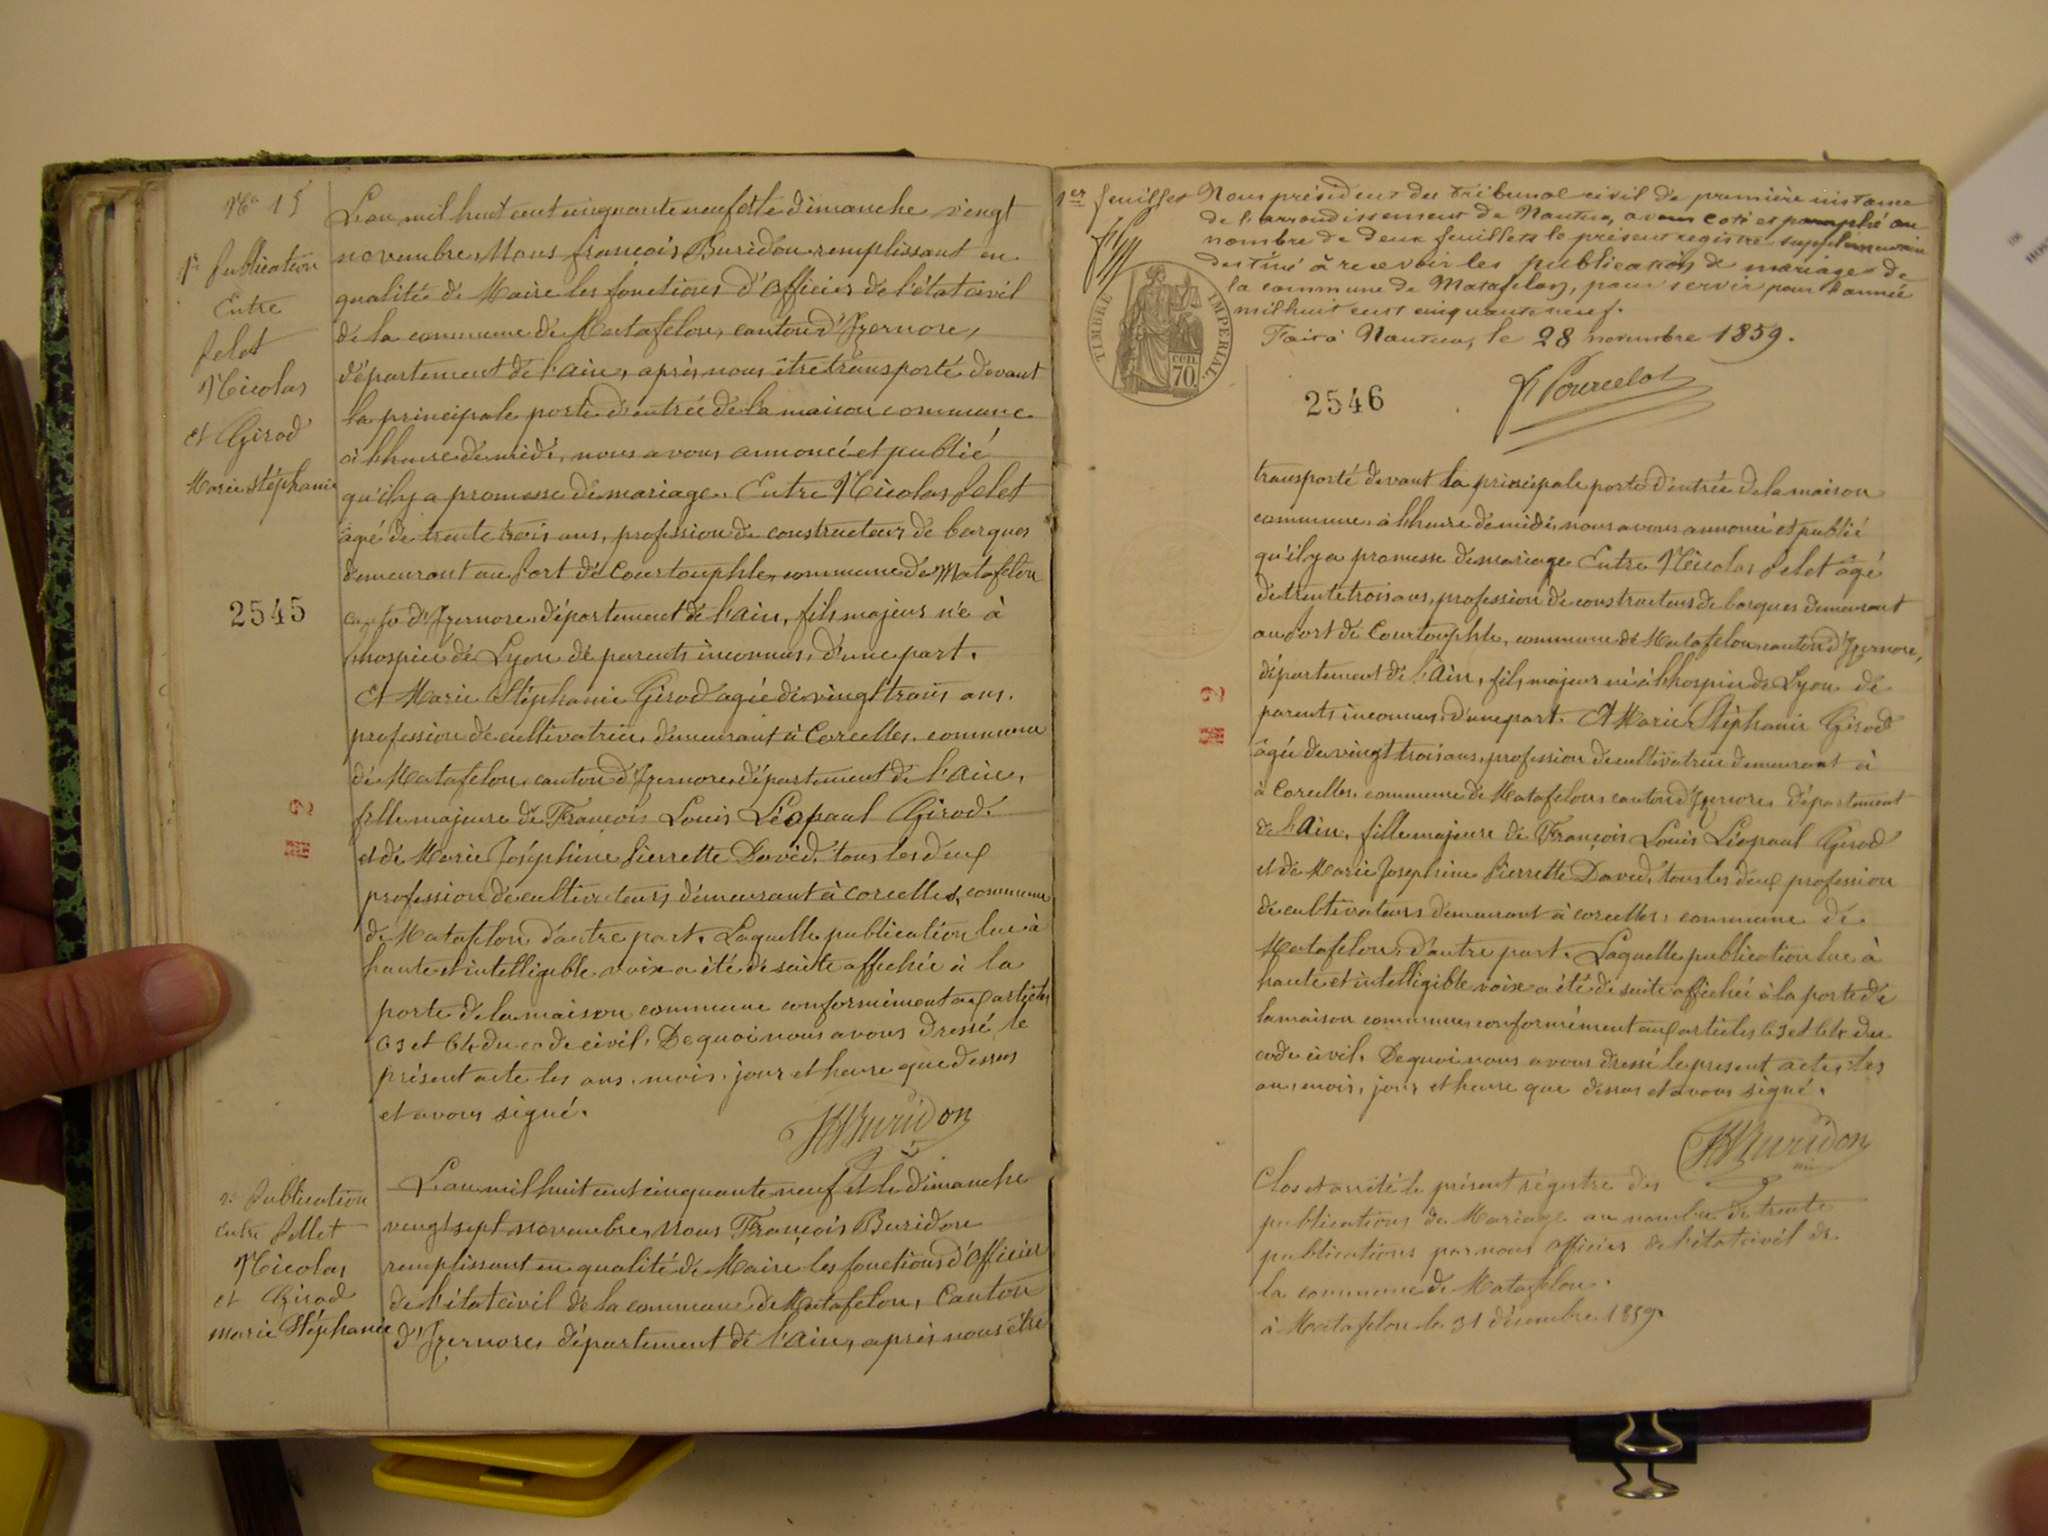 No 15
1e publication
Entre
Pelet
Nicolas
et Girod
Marie Stéphanie
2545
L'an mil huit cent cinquante neuf et le dimanche vingt
novembre, Nous françois Buridon remplissant en
qualité de Maire les fonctions d'Officier de l'état civil
de la commune de Matafelon, canton d'Izernore,
département de l'ain, après nous être transporté devant
la principale porte d'entrée de la maison commune
à l'heure de midi, nous avons annoncé et publié
qu'il y a promesse de mariage. Entre Nicolas Pelet
âgé de trente trois ans, profession de constructeur de barques
demeurant au Port de Courtouphle, commune de Matafelon
canton d'Izernore, département de l'ain, fils majeur né à
l'hospice de Lyon de parents inconnus, d'une part.
Et Marie Stéphanie Girod agée de vingt trois ans.
profession de cultivatrice, demeurant à Corcelles, commune
de Matafelon, canton d'Izernore, département de l'ain,
fille majeure de François Louis Léopaul Girod.
et de Marie Joséphine Pierrette David, tous les deux
profession de cultivateurs, demeurant à corcelles, commune
de Matafelon d'autre part. Laquelle publication lue à
haute et intelligible voix a été de suite affichée à la
porte de la maison commune conformément aux articles
63 et 64 du code civil. De quoi nous avons dressé le
présent acte les ans, mois, jour et heure que dessus
et avons signé.
Buridon
2e Publication
entre Pellet
Nicolas
et Girod
marie Stéphanie
L'an mil huit cent cinquante neuf et le dimanche
vingt sept novembre, nous François Buridon
remplissant en qualité de Maire les fonctions d'Officier
de l'état civil de la commune de Matafelon, Canton
d'Izernore, département de l'ain, après nous être
1er feuillet
Nous président du tribunal civil de première instance
de l'arrondissement de Nantua, avons coté et paraphé au
nombre de deux feuillets le présent registre supplémentaire
destiné à recevoir les publications de mariages de
la commune de Matafelon, pour servir pour l'année
mil huit cent cinquante neuf.
Fait à Nantua, le 28 novembre 1859.
TIMBRE IMPERIAL
70 cen.
2546
transporté devant la principale porte d'entrée de la maison
commune, à l'heure de midi, nous avons annoncé et publié
qu'il y a promesse de mariage Entre Nicolas Pelet âgé
de trente trois ans, profession de constructeur de barques demeurant
au Port de Courtouphle, commune de Matafelon, canton d'Izernore,
département de l'Ain, fils majeur né à l'hospice de Lyon de
parents inconnus, d'une part. Et Marie Stéphanie Girod
âgée de vingt trois ans, profession de cultivatrice demeurant à
à Corcelles, commune de Matafelon, canton d'Izernore, département
de l'Ain, fille majeure de François Louis Léopaul Girod
et de Marie Josephine Pierrette David, tous les deux profession
de cultivateurs demeurant à corcelles, commune de
Matafelon, d'autre part. Laquelle publication lue à
haute et intelligible voix a été de suite affichée à la porte de
la maison commune, conformément aux articles 63 et 64 du
code civil. De quoi nous avons dressé le present acte, les
an, mois, jour et heure que dessus et avons signé.
Buridon
Clos et arrêté le présent régistre des
publications de Mariage au nombre de trente
publications par nous officier de l'état civil de
la commune de Matafelon.
à Matafelon le 31 décembre 1859